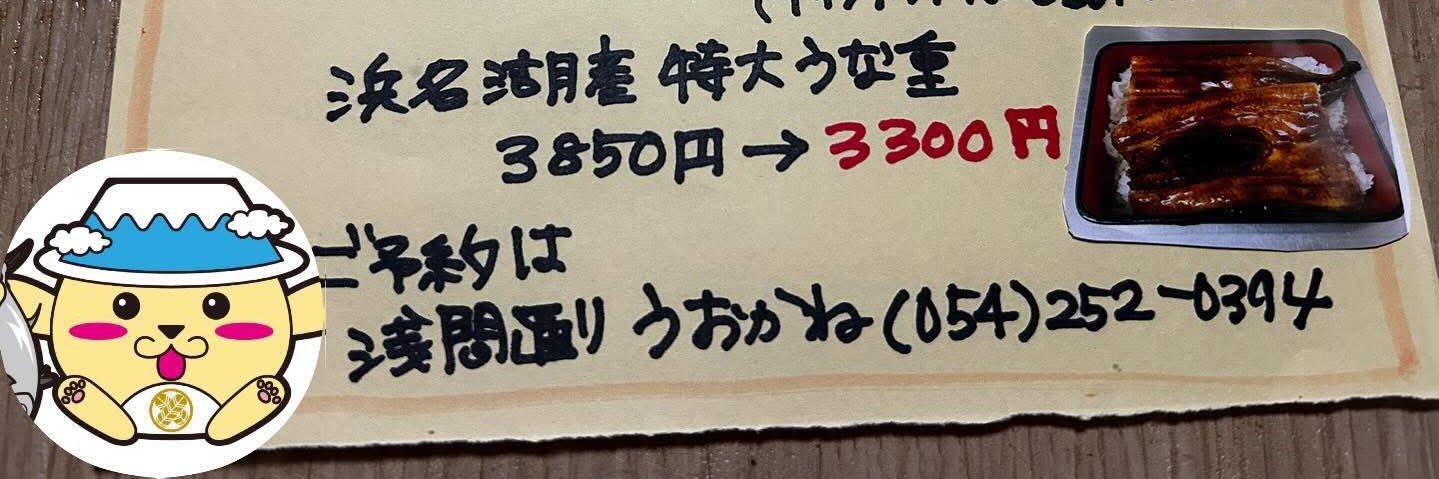 浜名湖産 特大うな重
3850円→3300円
ご予約は
浅間通り うおかね(054)252-0394